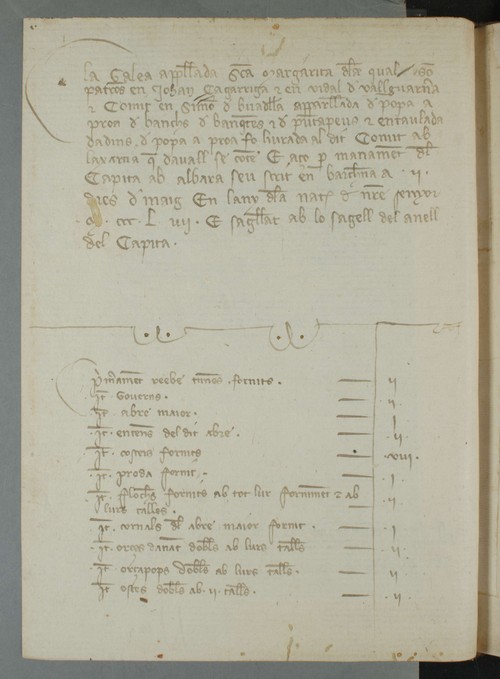 la Galea appellada Sca Margarita dla qual son
patros en Johan Çagarriga e en vidal d vallguarna
e Comit en Simo d apparellada d popa a
proa d banchs d banqtes e d e entaulada
dadins d popa a proa fo liurada al dit Comit ab
la xarcia q dauall se cote E aço p manamet dl
Capita ab albara seu scrit en barchna a · ii ·
dies d maig En lany dla nat d nre senyor
· ccc · L · vii · E sagellat ab lo sagell del anell
del Capita ·
Primamet reebe timos fornits · ii
It · Gouerns · ii
It · abre maior · i
It · entenes del dit abre · ii
It · costers fornits · xviii ·
It · proda fornit · i
It · fornits ab tot lur forniment e ab ii
lurs talles ·
It · cornals dl abre maior fornit · i
It · orces dauat dobles ab lurs talles ii
It · orçapops dobles ab lurs talles · ii
It · ostes dobles ab · ii · talles · ii